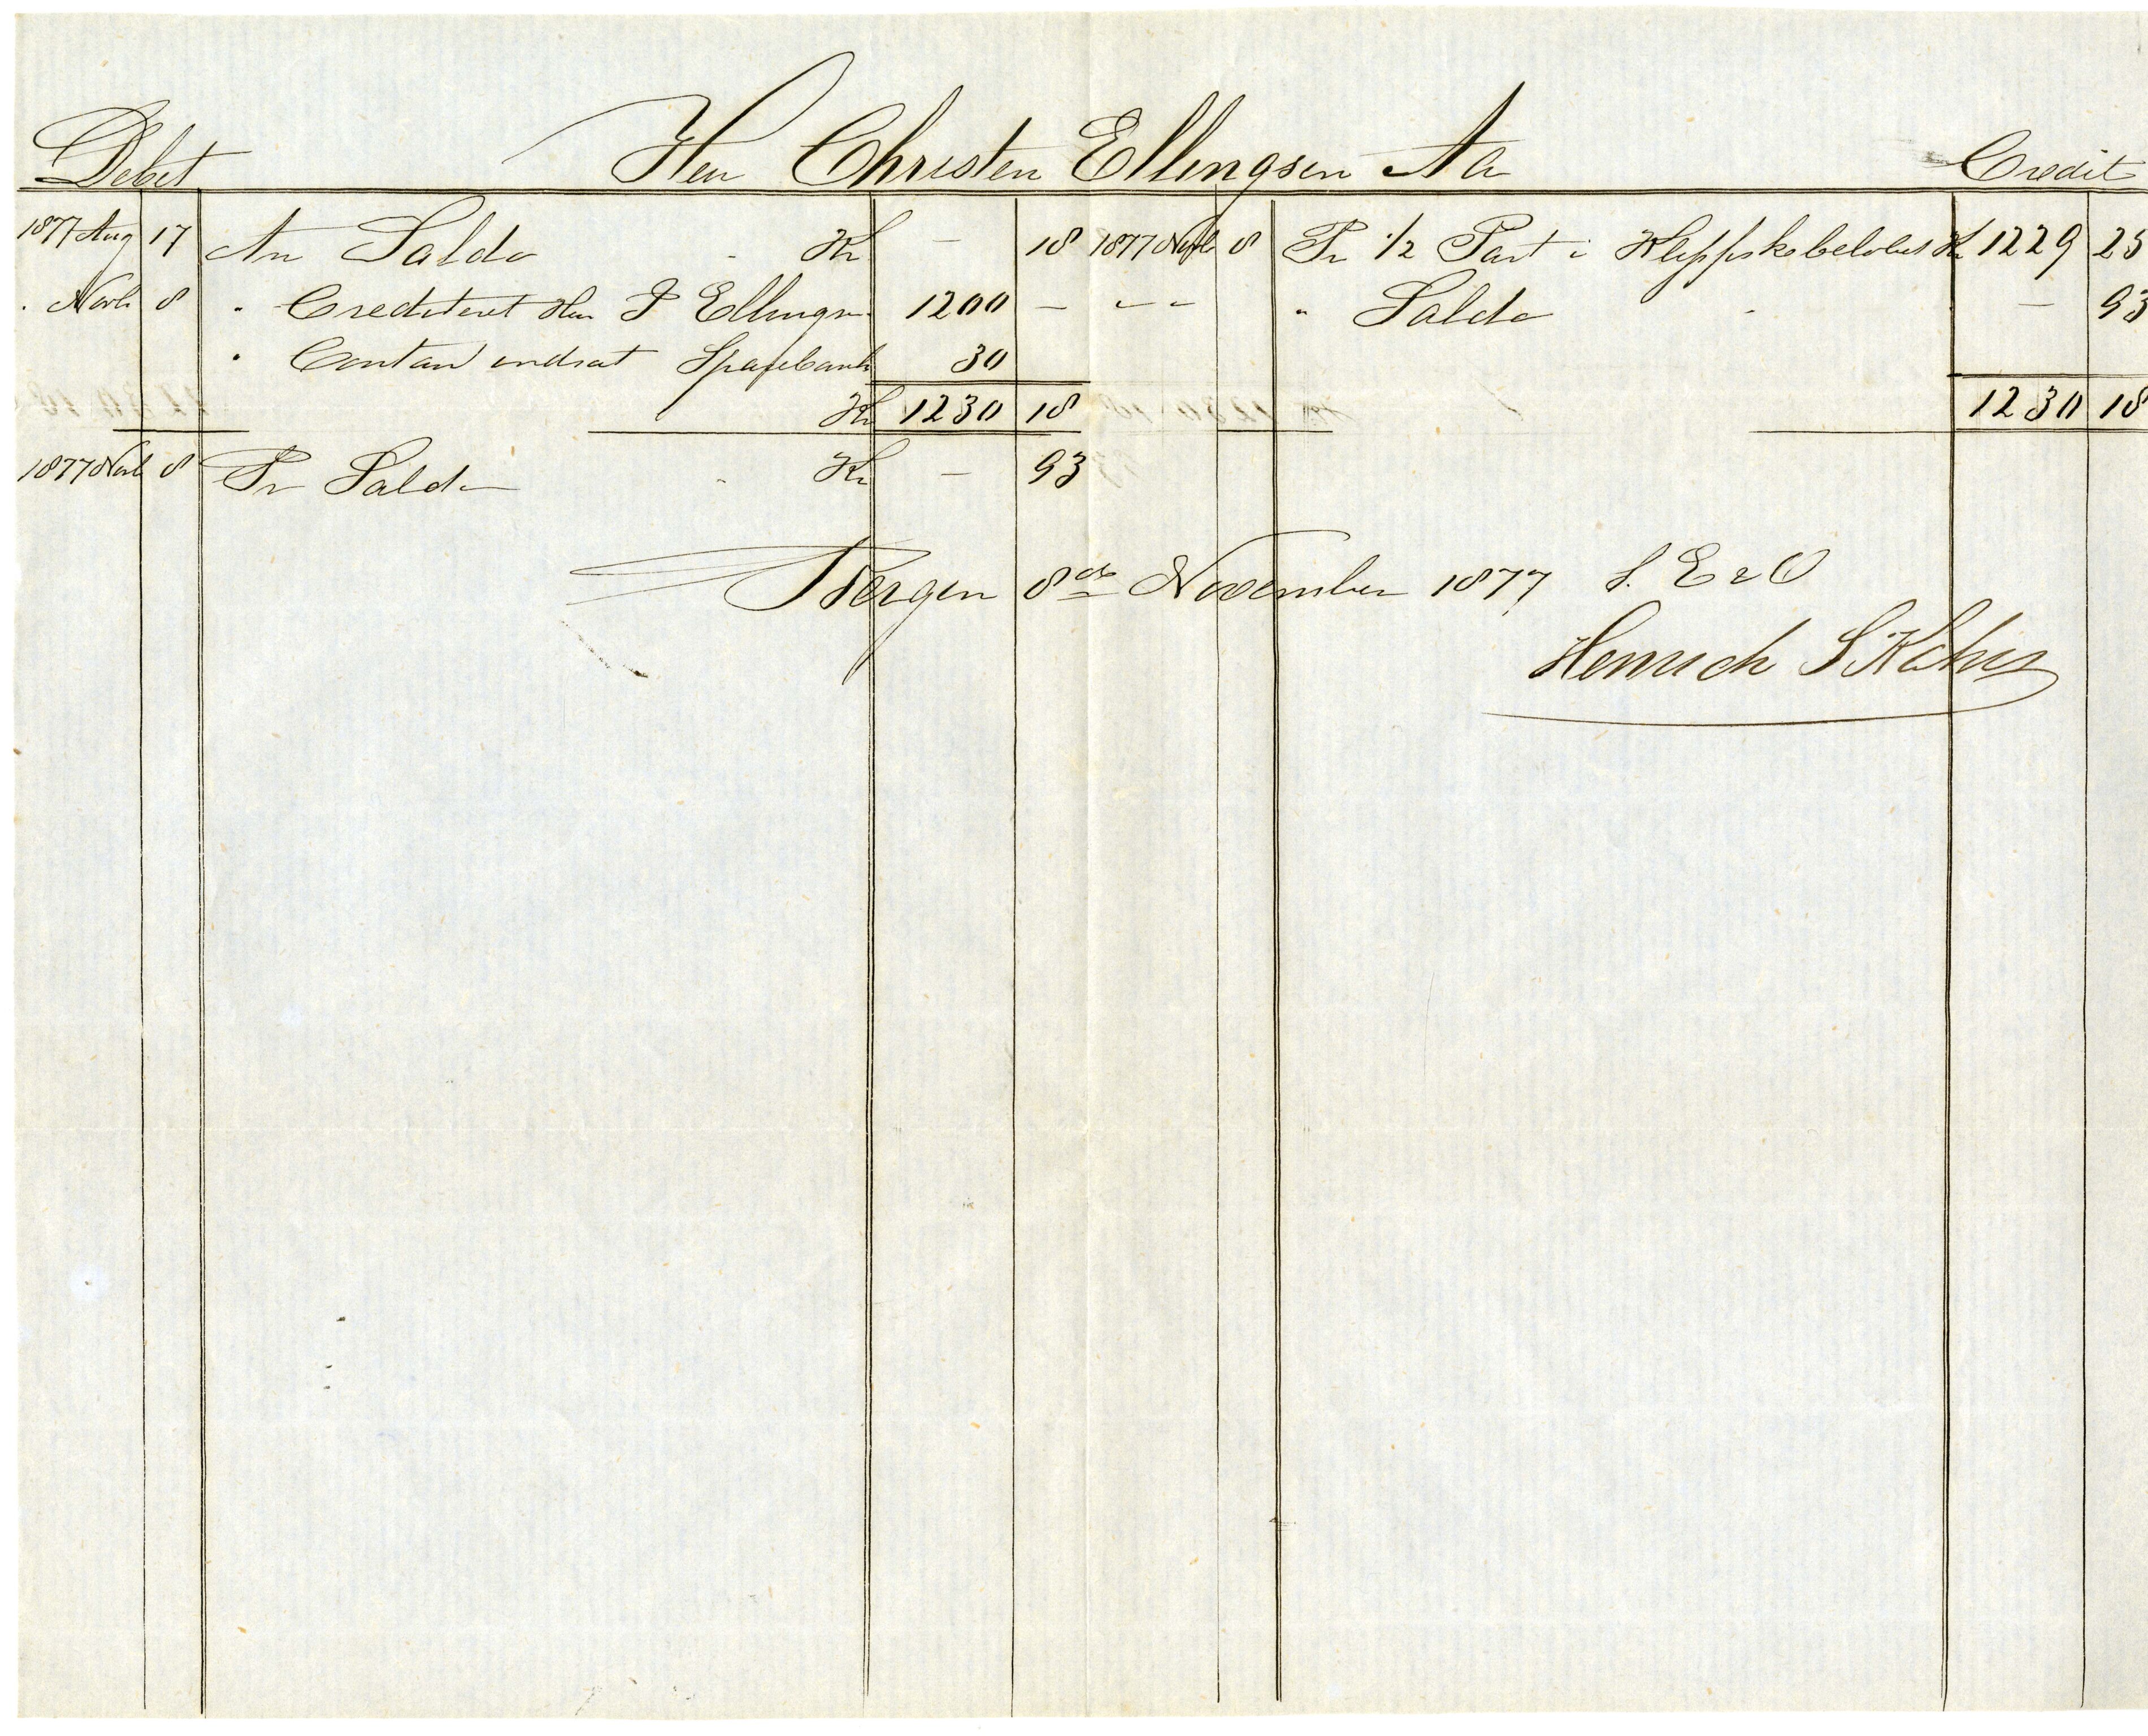 Debet Herr Christen Ellingsen Aa Credit
1877 Aug 17 An Saldo Kr — 18 1877 Novb 8 Pr 1/2 Part i Klipfiskebeløbet Kr 1229 25
" Novb 8 " Crediteret Herr P Ellingsen 1200 — " " " Saldo " — 93
" Contant indsat Sparebank 30
Kr 1230 18 1230 18
1877 Novb 8 Pr Saldo " Kr — 93
Bergen 8de November 1877 S. E & O
Henrich S Kahrs